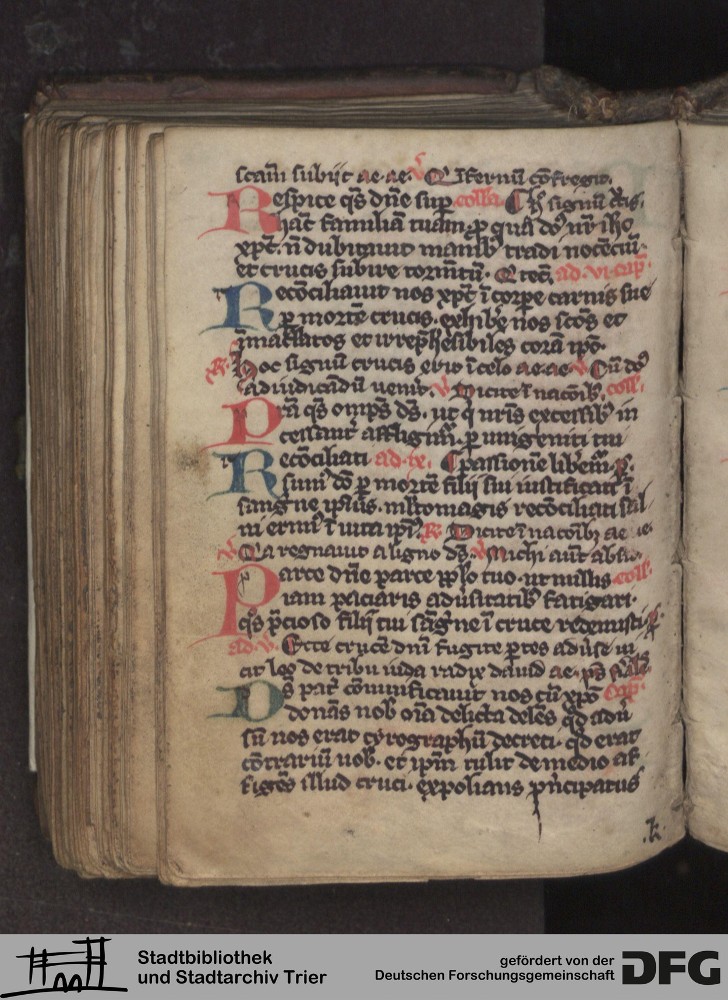 scam subiit ae ae. v Et infernū cōfregit.
Respice qs dn̄e sup collā Per signū c̄cis
hāc familiā tuam p qua dn̄s nr̄ ihc
xpc. n̄ dubitauit manib tradi nocēciū
et crucis subire tormētū. Qui tec. ad vi cap
Recōciliauit nos xpc ī corpe carnis sue
p mortē crucis. exhibe nos scōs et
īmaclatos et irrephēsibiles corā ipo.
R. Hoc signū crucis erit ī celo ae ae. v Cū dn̄s
ad iudicādū uenit. v Dicite ī nacōib. coll.
Pra qs omps ds. ut q nris excessib in
cessant affligim. p unigeniti tui
Recōciliati ad ix. passionē libem. p.
sum dō p mortē filii sui iustificati ī
sanguine ipius. mltomagis recōciliati sal
ui erim ī uita ipi. R. Dicite ī nacōib ae ae.
v Qa regnauit a ligno ds. Michi aūt absit
Parce dn̄e parce pplo tuo. ut nullis coll.
iam paciaris aduersitatib fatigari.
qs p̄cioso filii tui sāgne ī cruce redemisti. p
ad v. Ecce crucē dnī fugite partes aduerse ui
cit leo de tribu iuda radix dauid ae. ps
Ds pat cōuiuificauit nos cū xpo cap.
donās nob oīa delicta delēs qd adu
sū nos erat cyrographū decreti. qd erat
cōtrariū nob. et ipm tulit de medio af
figēs illud cruci. expolians p̄ncipatus
.k.
Stadtbibliothek
und Stadtarchiv Trier
gefördert von der
Deutschen Forschungsgemeinschaft
DFG